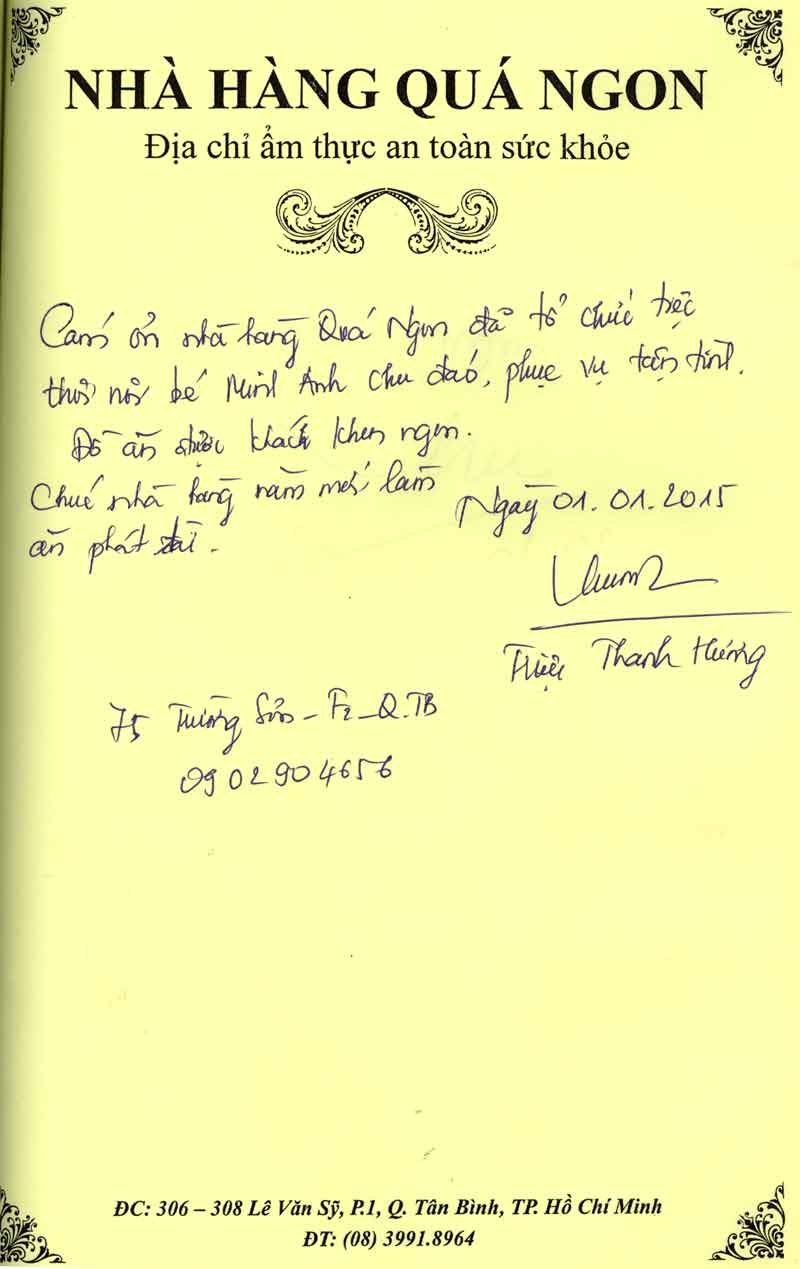 NHÀ HÀNG QUÁ NGON
Địa chỉ ẩm thực an toàn sức khỏe
Cám ơn nhà hàng Quá Ngon đã tổ chức tiệc
thôi nôi bé Minh Anh chu đáo, phục vụ tận tình.
Đồ ăn được khách khen ngon.
Chúc nhà hàng năm mới làm
ăn phát tài.
Ngày 01.01.2015
Triệu Thanh Hương
75 Trường Sơn - F2 - Q.TB
0902904656
ĐC: 306 – 308 Lê Văn Sỹ, P.1, Q. Tân Bình, TP. Hồ Chí Minh
ĐT: (08) 3991.8964